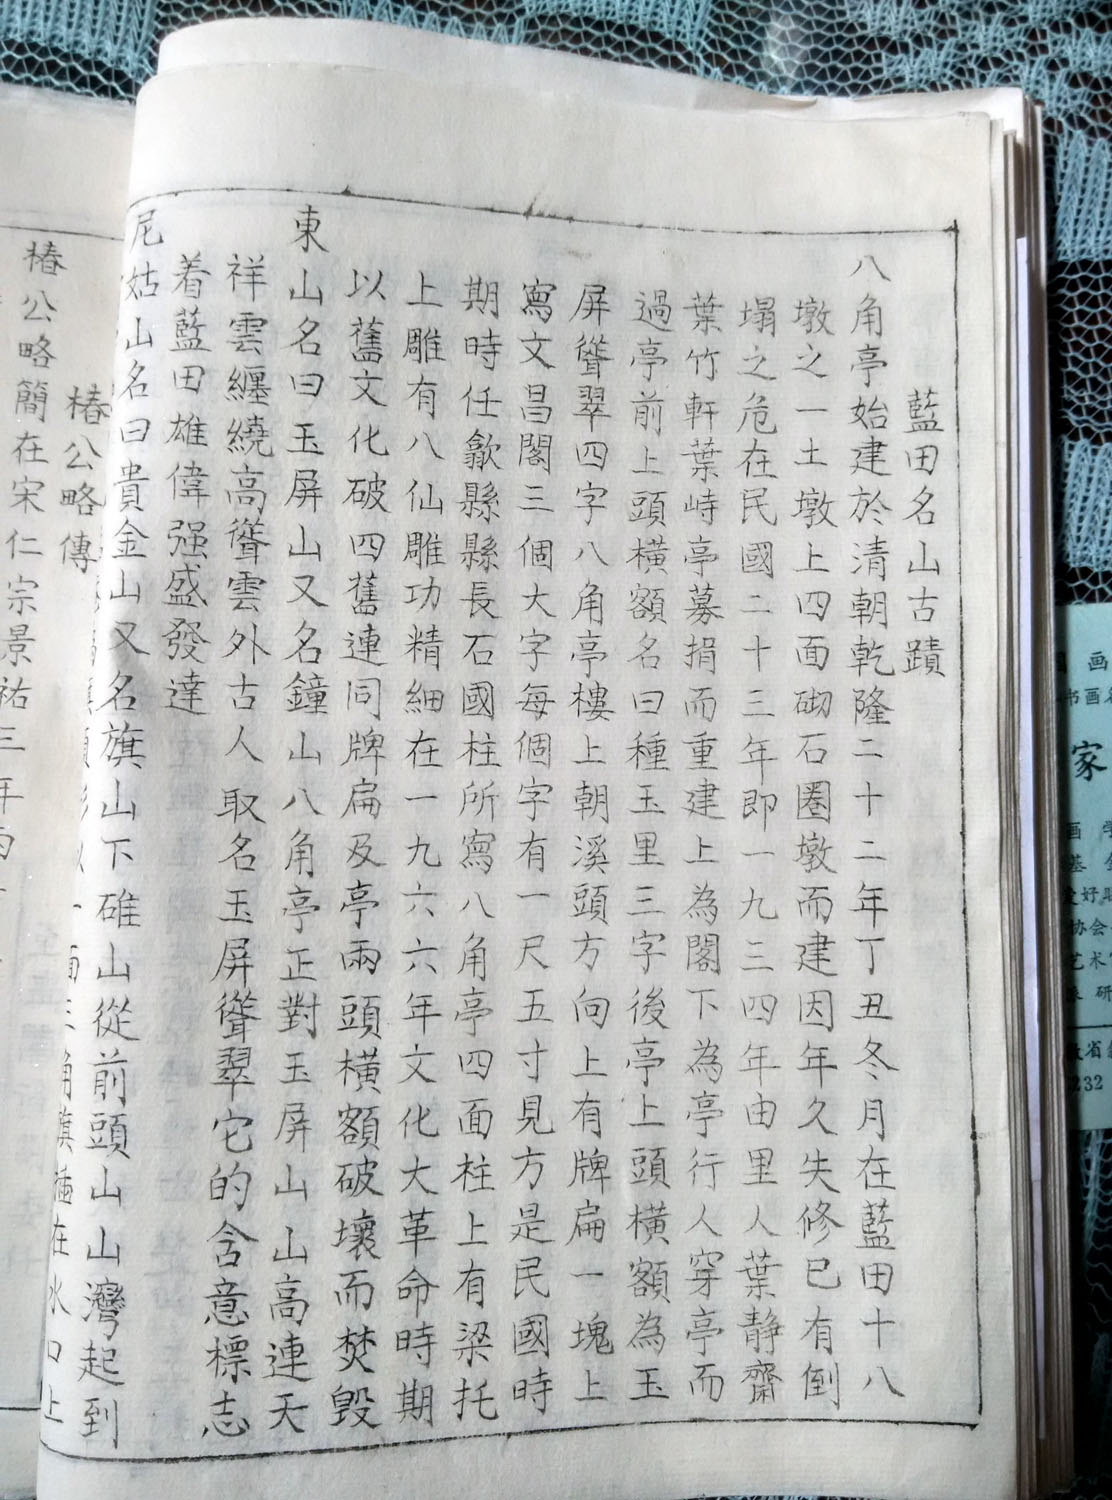 藍田名山古蹟
八角亭始建於清朝乾隆二十二年丁丑冬月在藍田十八
墩之一土墩上四面砌石圈墩而建因年久失修已有倒
塌之危在民國二十三年即一九三四年由里人葉静齋
葉竹軒葉峙亭募捐而重建上為閣下為亭行人穿亭而
過亭前上頭橫額名曰種玉里三字後亭上頭橫額為玉
屏聳翠四字八角亭樓上朝溪頭方向上有牌扁一塊上
寫文昌閣三個大字每個字有一尺五寸見方是民國時
期時任歙縣縣長石國柱所寫八角亭四面柱上有梁托
上雕有八仙雕功精細在一九六六年文化大革命時期
以舊文化破四舊連同牌扁及亭兩頭橫額破壞而焚毀
東山名曰玉屏山又名鐘山八角亭正對玉屏山山高連天
祥雲纏繞高聳雲外古人取名玉屏聳翠它的含意標志
着藍田雄偉强盛發達
尼姑山名曰貴金山又名旗山下碓山從前頭山山灣起到
三角旗插在水口上
椿公略傳
椿公略簡在宋仁宗景祐三年丙
画
书画
家
画 学
基
爱好
协会
艺术
研
省
232